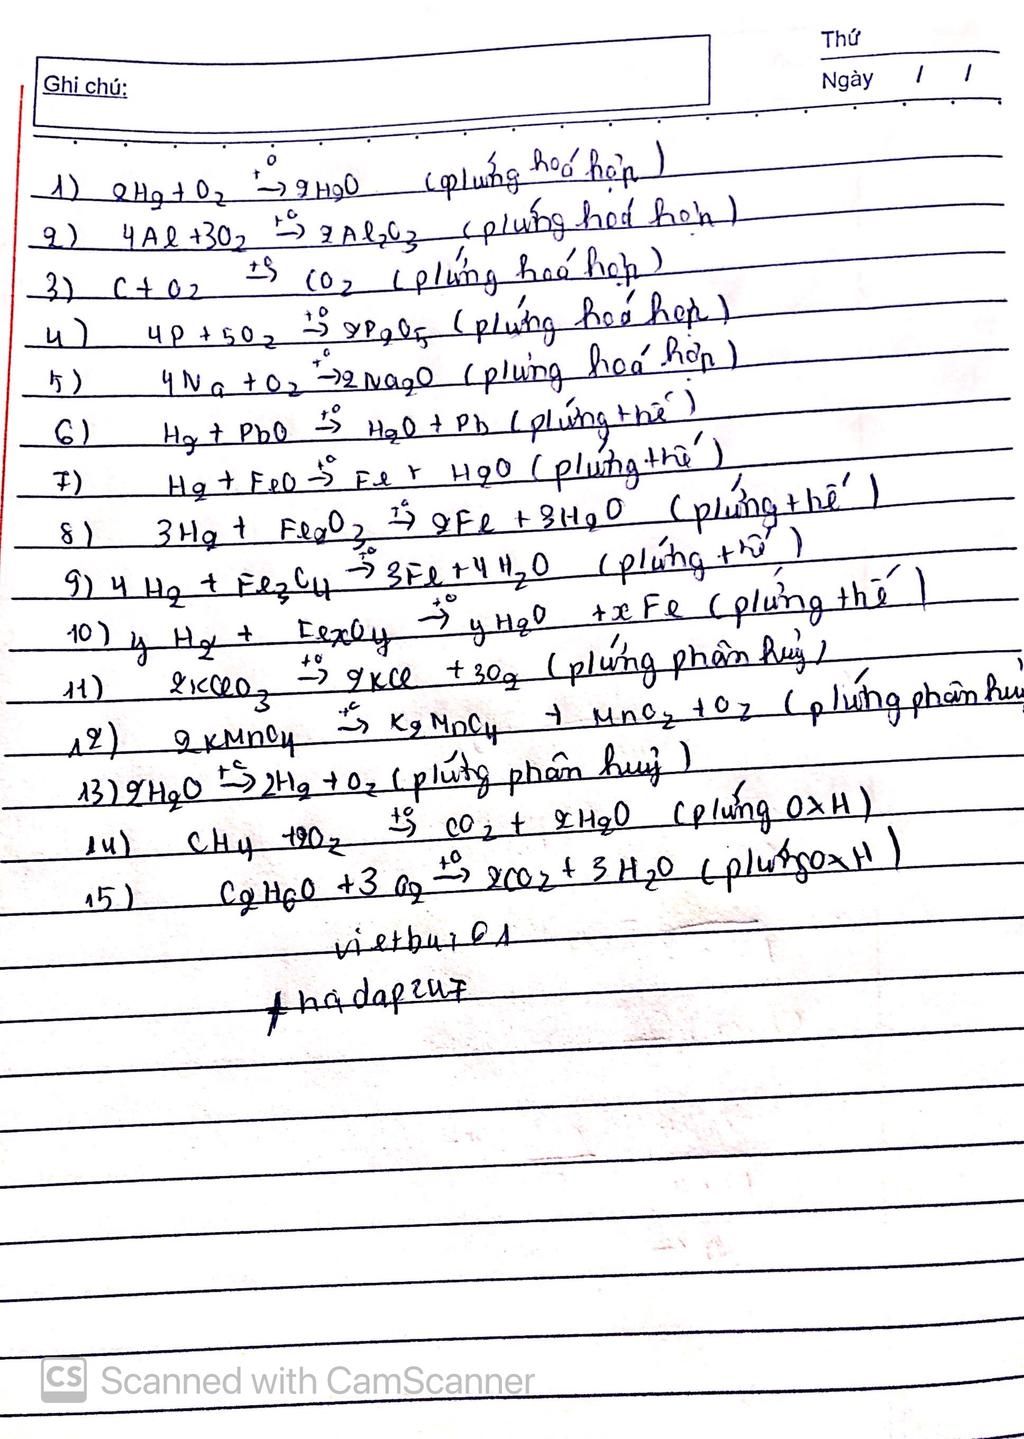 Thứ
Ghi chú:
Ngày / /
1) 2H2 + O2 t0→ 2H2O (plứng hoá hợp)
2) 4Al + 3O2 t0→ 2Al2O3 (plứng hoá hợp)
3) C + O2 t0→ CO2 (plứng hoá hợp)
4) 4P + 5O2 t0→ 2P2O5 (plứng hoá hợp)
5) 4Na + O2 t0→ 2Na2O (plứng hoá hợp)
6) H2 + PbO t0→ H2O + Pb (plứng thế)
7) H2 + FeO t0→ Fe + H2O (plứng thế)
8) 3H2 + Fe2O3 t0→ 2Fe + 3H2O (plứng thế)
9) 4H2 + Fe3O4 t0→ 3Fe + 4H2O (plứng thế)
10) y H2 + FexOy t0→ y H2O + x Fe (plứng thế)
11) 2KClO3 t0→ 2KCl + 3O2 (plứng phân huỷ)
12) 2KMnO4 t0→ K2MnO4 + MnO2 + O2 (plứng phân huỷ
13) 2H2O t0→ 2H2 + O2 (plứng phân huỷ)
14) CH4 + 2O2 t0→ CO2 + 2H2O (plứng OXH)
15) C2H6O + 3O2 t0→ 2CO2 + 3H2O (plứng OXH)
vietbui01
hadap247
CS Scanned with CamScanner